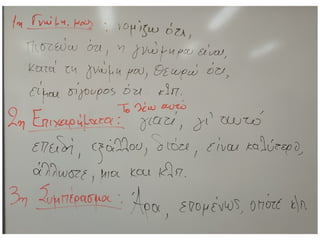 1η Γνώμη μας : νομίζω ότι,
πιστεύω ότι, η γνώμη μου είναι,
κατά τη γνώμη μου, θεωρώ ότι,
είμαι σίγουρος ότι κλπ.
Το λέω αυτό
2η Επιχειρήματα: γιατί, γι' αυτό
επειδή, εξάλλου, διότι, είναι καλύτερο,
άλλωστε, μια και κλπ.
3η Συμπέρασμα: Άρα, επομένως, οπότε κλπ